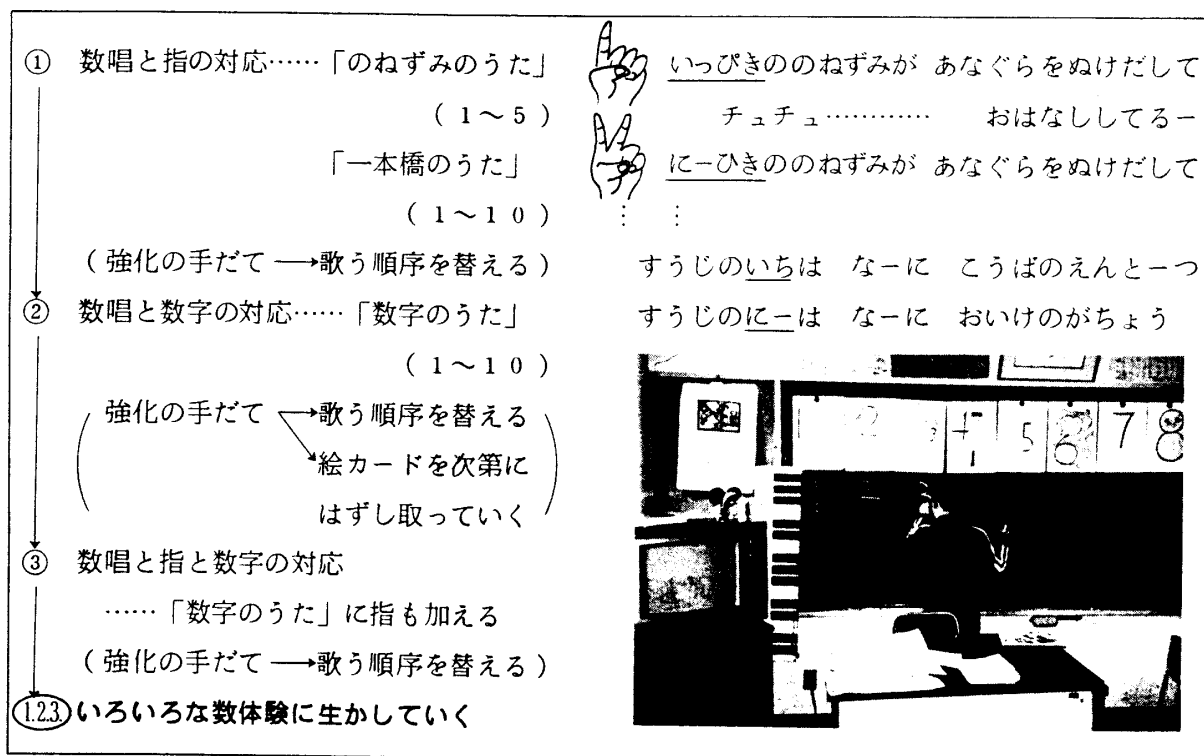 ① 数唱と指の対応……「のねずみのうた」
(1～5)
「一本橋のうた」
(1～10)
(強化の手だて→歌う順序を替える)
② 数唱と数字の対応……「数字のうた」
(1～10)
強化の手だて→歌う順序を替える
→絵カードを次第に
はずし取っていく
③ 数唱と指と数字の対応
……「数字のうた」に指も加える
(強化の手だて→歌う順序を替える)
1.2.3.いろいろな数体験に生かしていく
いっぴきののねずみが あなぐらをぬけだして
チュチュ………… おはなししてるー
にーひきののねずみが あなぐらをぬけだして
⋮ ⋮
すうじのいちは なーに こうばのえんとーつ
すうじのにーは なーに おいけのがちょう
5 6 7 8